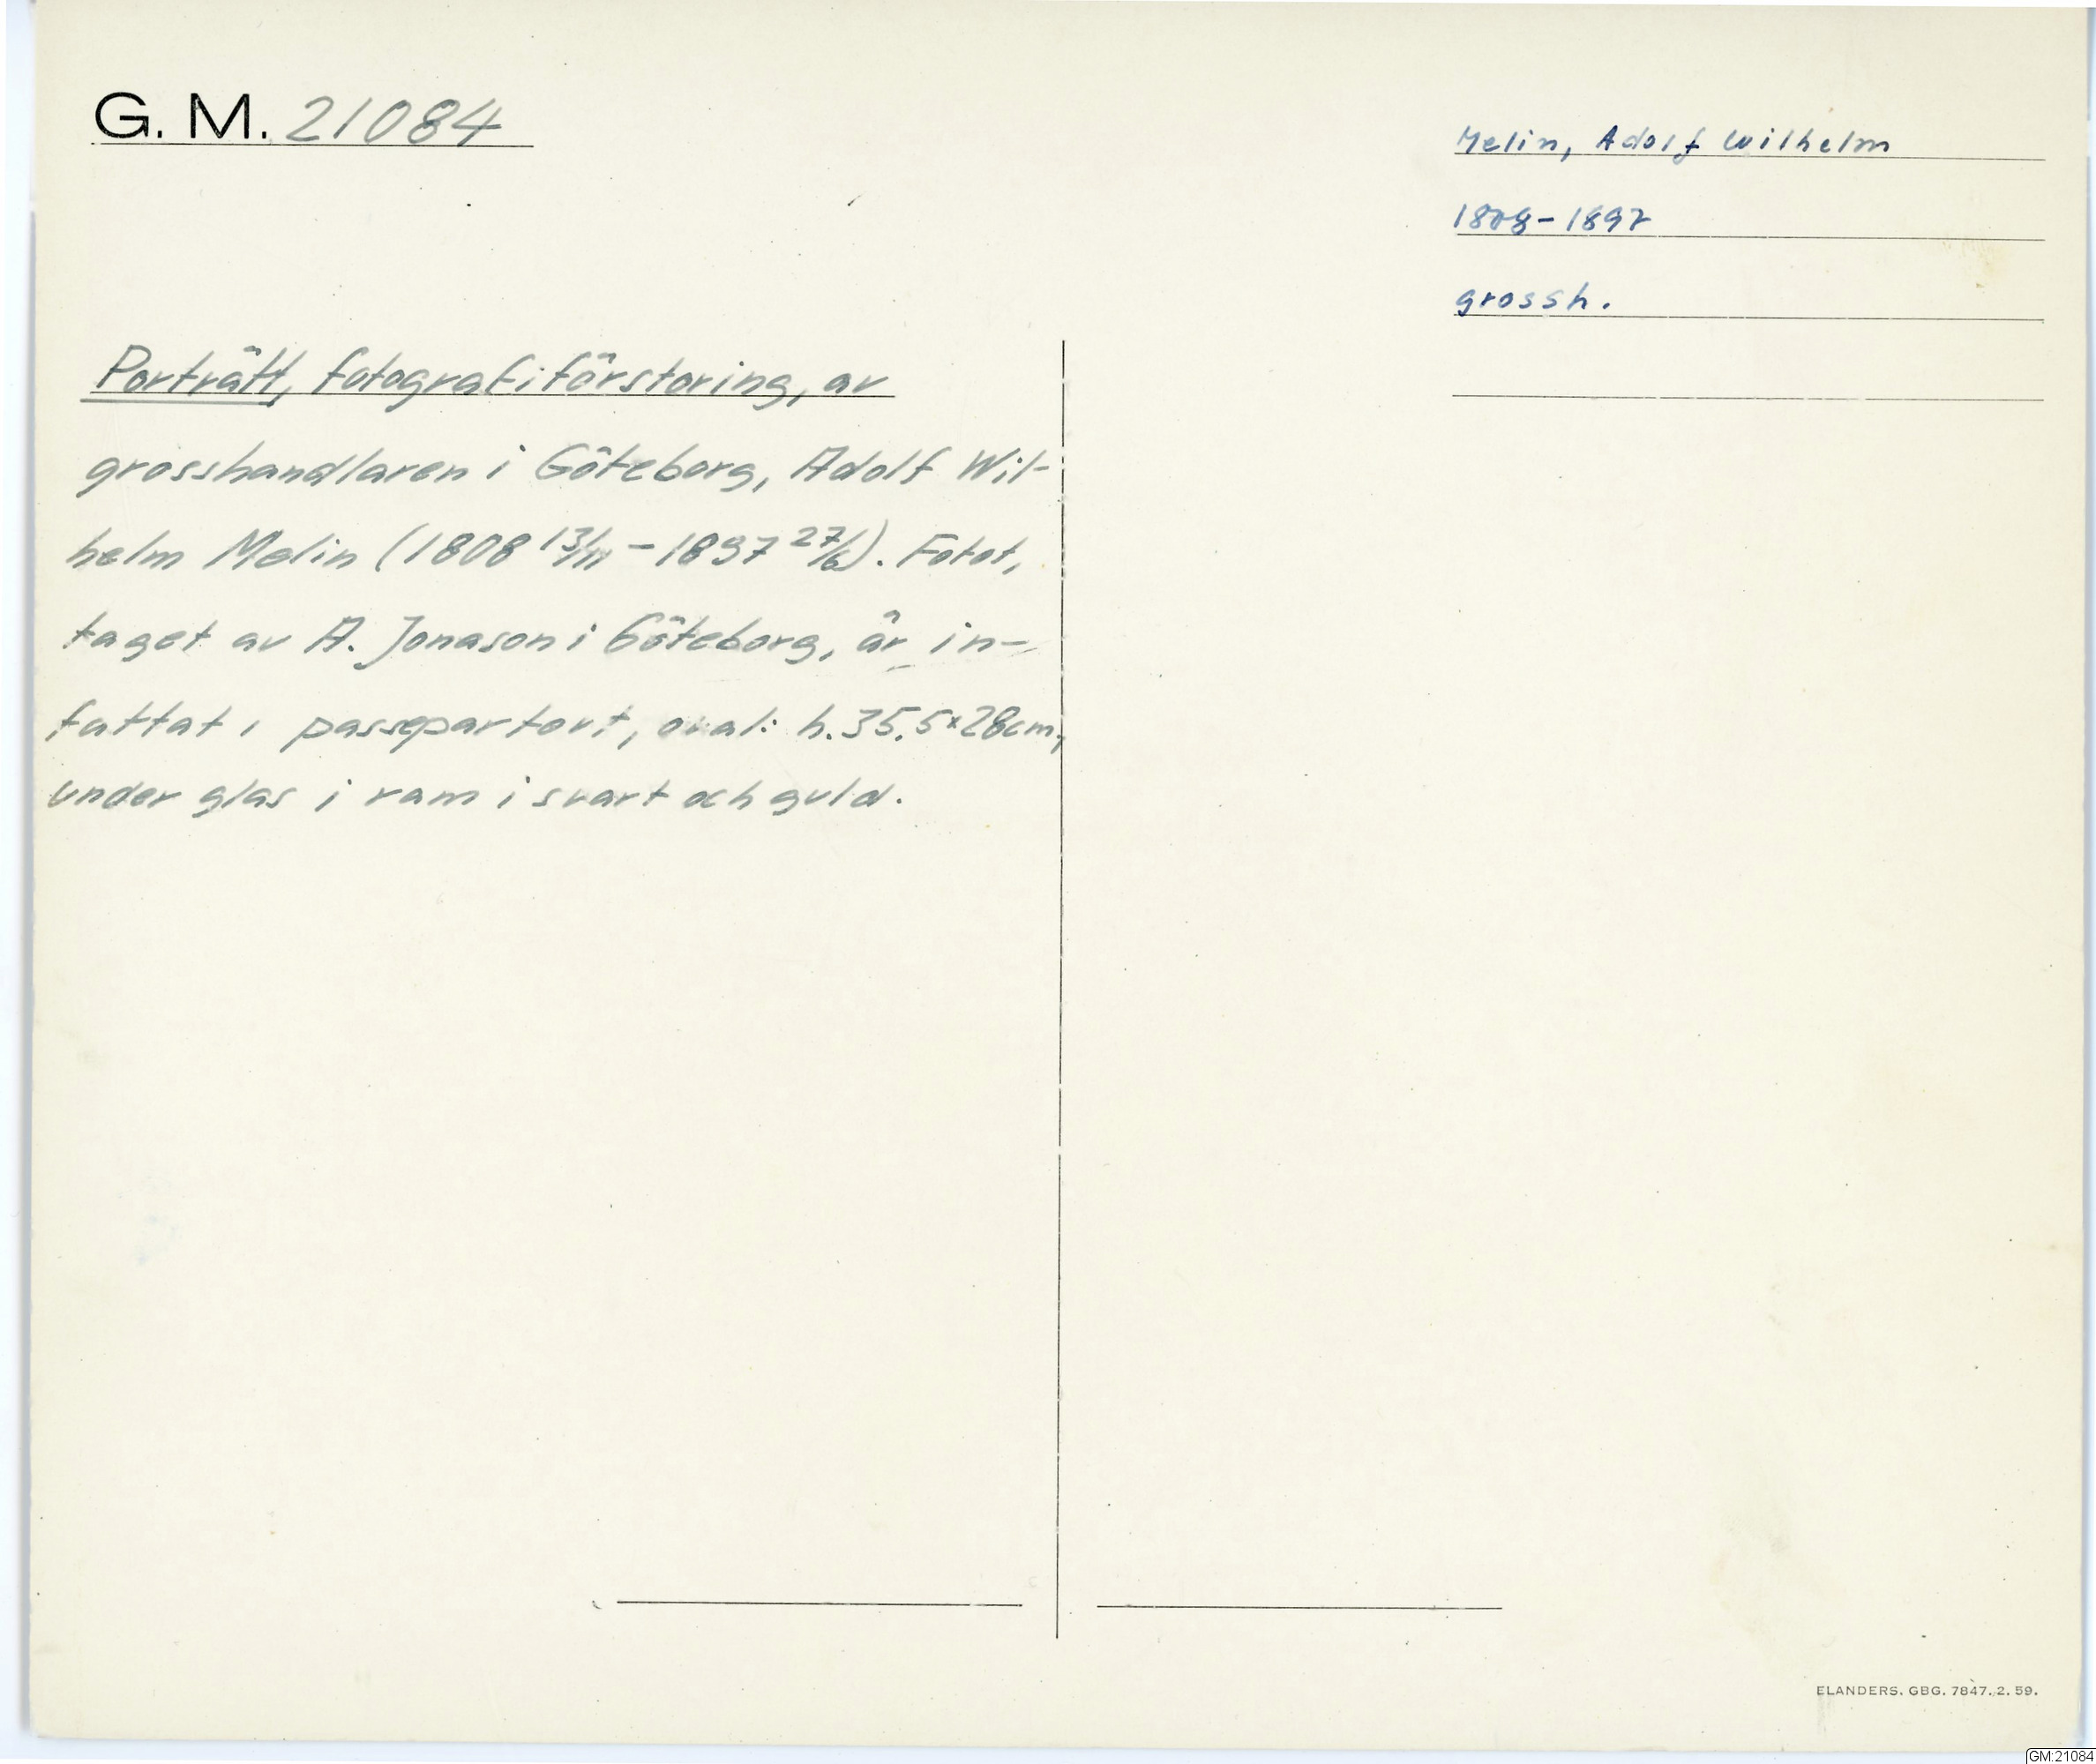 G. M. 21084
Melin, Adolf Wilhelm
1808-1897
grossh.
Porträtt, fotografiförstoring, av
grosshandlaren i Göteborg, Adolf Wil-
helm Melin (1808 13/11 - 1897 27/6). Fotot,
taget av A. Jonason i Göteborg, är in-
fattat i passepartout, oval: h. 35,5x28cm,
under glas i ram i svart och guld.
ELANDERS. GBG. 7847. 2. 59.
GM:21084